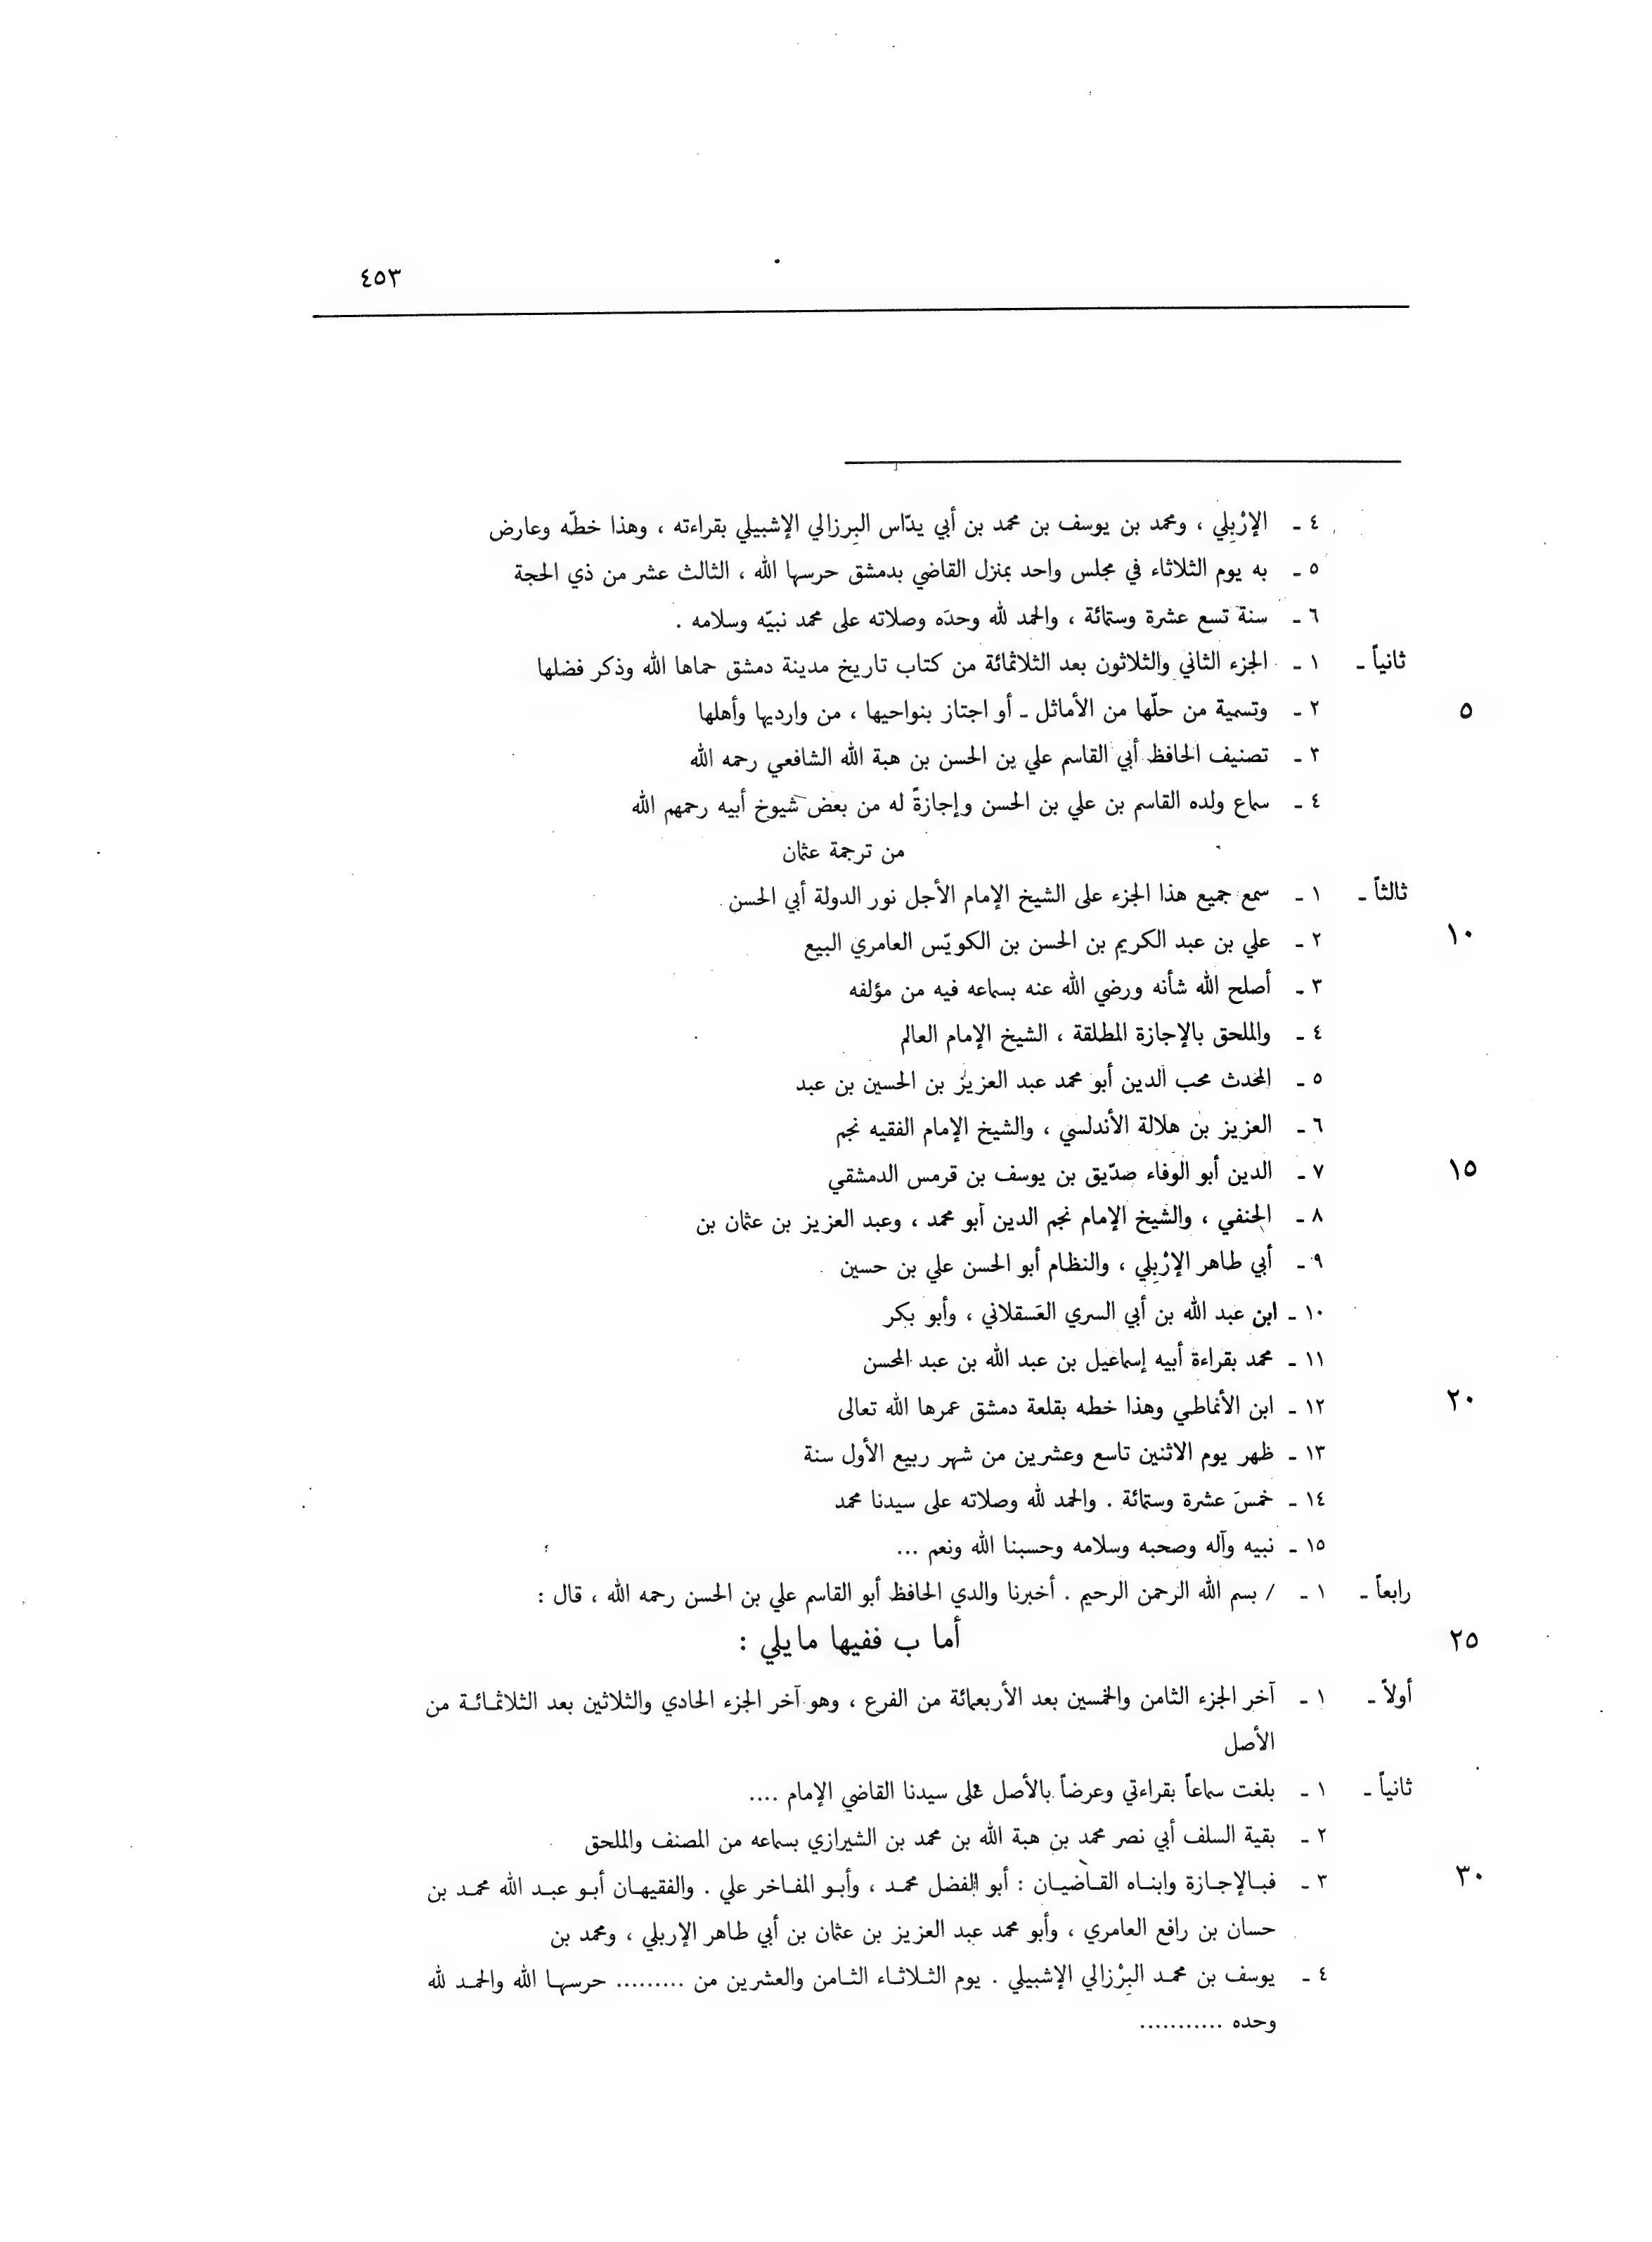 ٤٥٣
٤ ـ الإرْبِلي ، ومحمد بن يوسف بن محمد بن أبي يدّاس البِرزالي الإشبيلي بقراءته ، وهذا خطّه وعارض
٥ ـ به يوم الثلاثاء في مجلس واحد بمنزل القاضي بدمشق حرسها الله ، الثالث عشر من ذي الحجة
٦ ـ سنة تسع عشرة وستمائة ، والحمد لله وحدَه وصلاته على محمد نبيّه وسلامه .
ثانياً ـ ١ ـ الجزء الثاني والثلاثون بعد الثلاثمائة من كتاب تاريخ مدينة دمشق حماها الله وذكر فضلها
٥ ٢ ـ وتسمية من حلّها من الأماثل ـ أو اجتاز بنواحيها ، من وارديها وأهلها
٣ ـ تصنيف الحافظ أبي القاسم علي بن الحسن بن هبة الله الشافعي رحمه الله
٤ ـ سماع ولده القاسم بن علي بن الحسن وإجازةً له من بعض شيوخ أبيه رحمهم الله
من ترجمة عثمان
ثالثاً ـ ١ ـ سمع جميع هذا الجزء على الشيخ الإمام الأجل نور الدولة أبي الحسن
١٠ ٢ ـ علي بن عبد الكريم بن الحسن بن الكويّس العامري البيع
٣ ـ أصلح الله شأنه ورضي الله عنه بسماعه فيه من مؤلفه
٤ ـ والملحق بالإجازة المطلقة ، الشيخ الإمام العالم
٥ ـ المحدث محب الدين أبو محمد عبد العزيز بن الحسين بن عبد
٦ ـ العزيز بن هلالة الأندلسي ، والشيخ الإمام الفقيه نجم
١٥ ٧ ـ الدين أبو الوفاء صدّيق بن يوسف بن قرمس الدمشقي
٨ ـ الحنفي ، والشيخ الإمام نجم الدين أبو محمد ، وعبد العزيز بن عثمان بن
٩ ـ أبي طاهر الإرْبِلي ، والنظام أبو الحسن علي بن حسين
١٠ ـ ابن عبد الله بن أبي السري العَسقلاني ، وأبو بكر
١١ ـ محمد بقراءة أبيه إسماعيل بن عبد الله بن عبد المحسن
٢٠ ١٢ ـ ابن الأنماطي وهذا خطه بقلعة دمشق عمرها الله تعالى
١٣ ـ ظهر يوم الاثنين تاسع وعشرين من شهر ربيع الأول سنة
١٤ ـ خمسَ عشرة وستمائة . والحمد لله وصلاته على سيدنا محمد
١٥ ـ نبيه وآله وصحبه وسلامه وحسبنا الله ونعم ...
رابعاً ـ ١ ـ / بسم الله الرحمن الرحيم . أخبرنا والدي الحافظ أبو القاسم علي بن الحسن رحمه الله ، قال :
٢٥ أما ب ففيها مايلي :
أولاً ـ ١ ـ آخر الجزء الثامن والخمسين بعد الأربعمائة من الفرع ، وهو آخر الجزء الحادي والثلاثين بعد الثلاثمائة من
الأصل
ثانياً ـ ١ ـ بلغت سماعاً بقراءتي وعرضاً بالأصل على سيدنا القاضي الإمام ....
٢ ـ بقية السلف أبي نصر محمد بن هبة الله بن محمد بن الشيرازي بسماعه من المصنف والملحق
٣٠ ٣ ـ فبالإجازة وابناه القاضيان : أبو الفضل محمد ، وأبو المفاخر علي . والفقيهان أبو عبد الله محمد بن
حسان بن رافع العامري ، وأبو محمد عبد العزيز بن عثمان بن أبي طاهر الإربلي ، ومحمد بن
٤ ـ يوسف بن محمد البِرْزالي الإشبيلي . يوم الثلاثاء الثامن والعشرين من ......... حرسها الله والحمد لله
وحده ...........